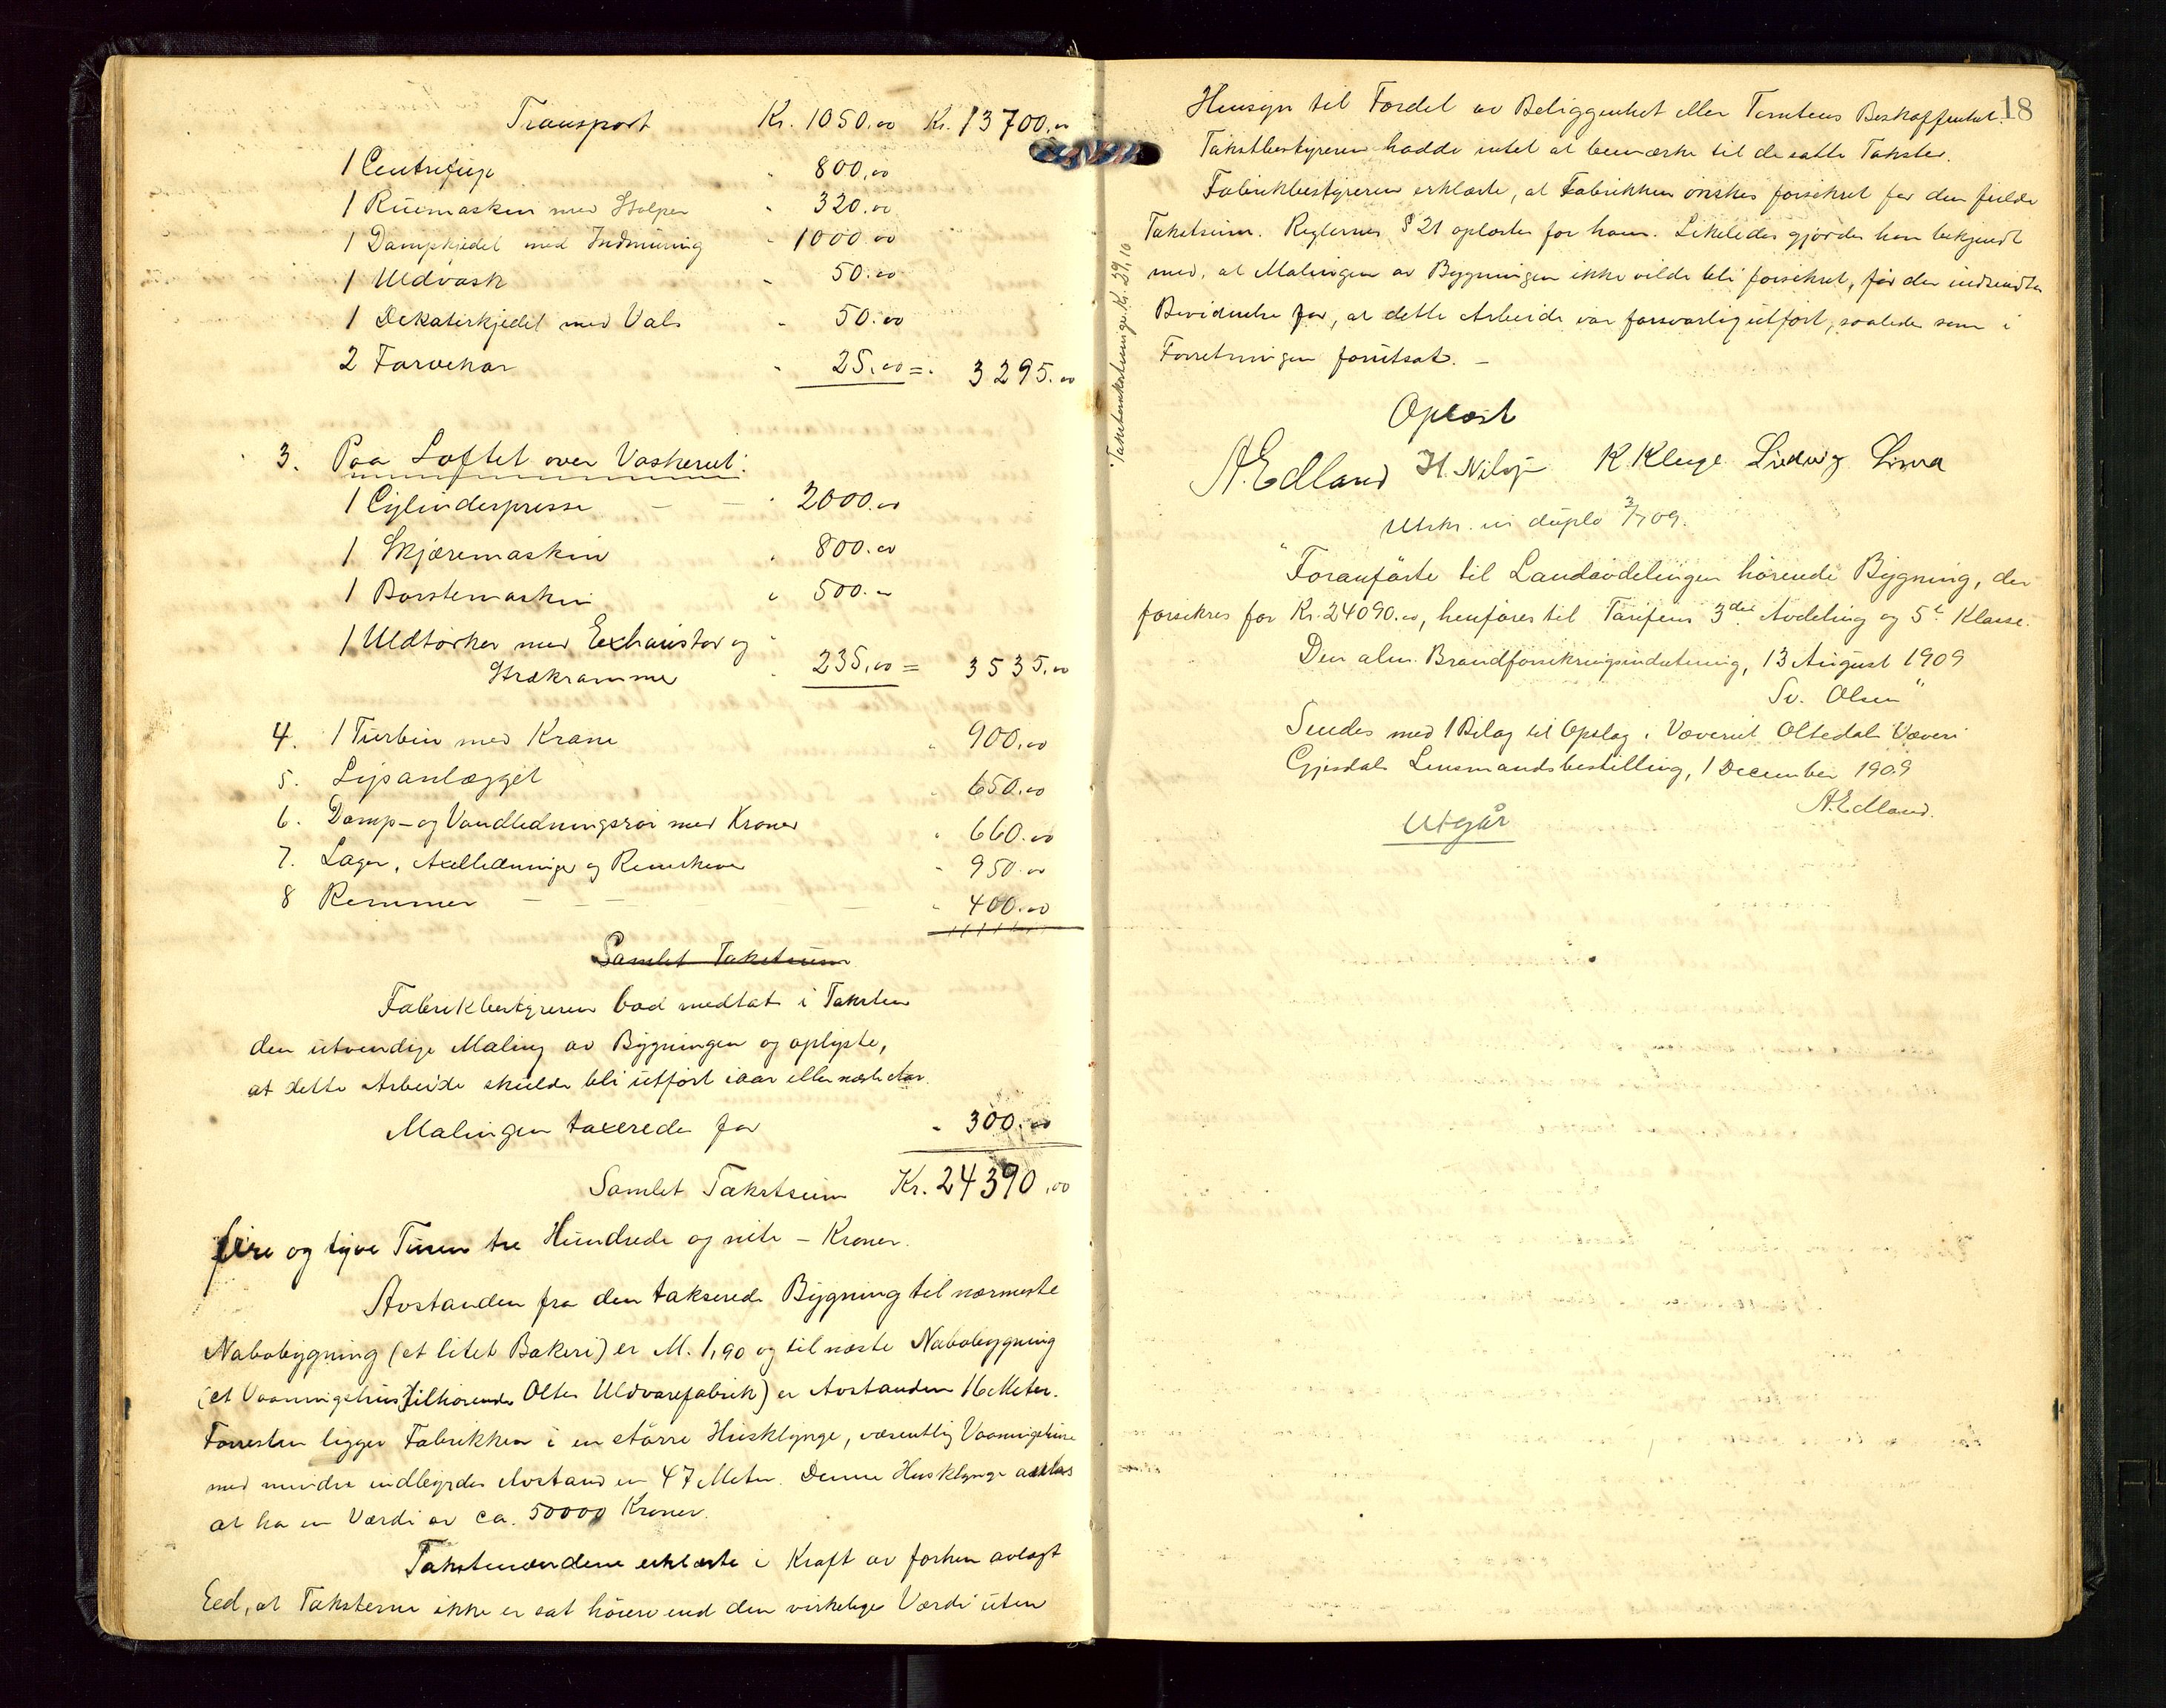 Transport Kr. 1050.00 Kr. 13700.00
1 Centrifuge " 800.00
1 Ruemaskin med Stolper " 320.00
1 Dampkjedel med Indmuring " 1000.00
1 Uldvask " 50.00
1 Dekaterkjedel med Vals " 50.00
2 Farvekar " 25.00 = " 3295.00
3. Paa Loftet over Vaskeriet:
1 Cylinderpresse " 2000.00
1 Skjæremaskin " 800.00
1 Børstemaskin " 500.00
1 Uldtørker med Exhaustor og
Strækramme " 235.00 = 3535.00
4. 1 Turbin med Krane " 900.00
5. Lysanlægget " 650.00
6. Damp- og Vandledningsrør med Kraner " 660.00
7. Lager, Axelledninger og Remskiver " 950.00
8 Remmer " 400.00
Samlet Takstsum
Fabrikbestyreren bad medtat i Taksten
den utvendige Maling av Bygningen og oplyste,
at dette Arbeide skulde bli utført iaar eller næste Aar.
Malingen taxeredes for " 300.00
Samlet Takstsum Kr. 24390.00
fire og tyve Tusen tre Hundrede og niti – Kroner.
Avstanden fra den takserede Bygning til nærmeste
Nabobygning (et litet Bakeri) er M. 1,90 og til næste Nabobygning
(et Vaaningshus tilhørende Oltes Uldvarefabrik) er Avstanden 16 Meter.
Forresten ligger Fabrikken i en större Husklynge, væsentlig Vaaningshuse
med mindre indbyrdes Avstand en 47 Meter. Denne Husklynge antas
at ha en Værdi av ca. 50000 Kroner.
Takstmændene erklærte i Kraft av forhen avlagt
Eed, at Taksterne ikke er sat høiere end den virkelige Værdi uten
18
Hensyn til Fordel av Beliggenhet eller Tomtens Beskaffenhet.
Takstbestyreren hadde intet at bemærke til de satte Takster.
Fabrikbestyreren erklærte, at Fabrikken ønskes forsikret for den fulde
Takstsum. Reglernes § 21 oplæstes for ham. Likeledes gjordes han bekjendt
med, at Malingen av Bygningen ikke vilde bli forsikret, før der indsendtes
Bevidnelse for, at dette Arbeide var forsvarlig utført, saaledes som i
Forretningen forutsat. –
Takstomkostninger Kr. 29,10
Oplæst
A. Edland K. Kluge Ludvig Lima
Utskr. in duplo 3/7 09.
"Foranførte til Landavdelingen hörende Bygning, der
forsikres for Kr. 24090.00, henføres til Tarifens 3die Avdeling og 5te Klasse.
Den alm. Brandforsikringsindretning, 13 August 1909
Sv. Olsen"
Sendes med 1 Bilag til Opslag i Væveriet Oltedals Væveri
Gjesdals Lensmandsbestilling, 1 December 1909
A. Edland.
Utgår